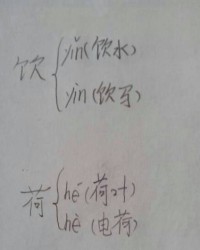 饮
yǐn(饮水)
yìn(饮马)
荷
hé(荷叶)
hè(电荷)